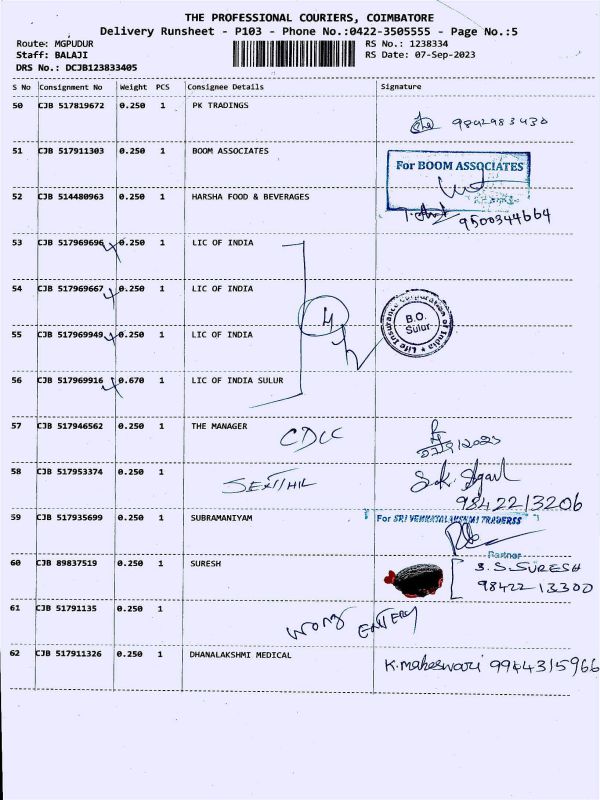 THE PROFESSIONAL COURIERS, COIMBATORE
Delivery Runsheet - P103 - Phone No.:0422-3505555 - Page No.:5
Route: MGPUDUR RS No.: 1238334
Staff: BALAJI RS Date: 07-Sep-2023
DRS No.: DCJB123833405
S No Consignment No Weight PCS Consignee Details Signature
50 CJB 517819672 0.250 1 PK TRADINGS
9842983430
51 CJB 517911303 0.250 1 BOOM ASSOCIATES
For BOOM ASSOCIATES
52 CJB 514480963 0.250 1 HARSHA FOOD & BEVERAGES
9500344664
53 CJB 517969696 0.250 1 LIC OF INDIA
54 CJB 517969667 0.250 1 LIC OF INDIA
4
Life Insurance Corporation of India
B.O.
Sulur
55 CJB 517969949 0.250 1 LIC OF INDIA
56 CJB 517969916 0.670 1 LIC OF INDIA SULUR
57 CJB 517946562 0.250 1 THE MANAGER
CDCC
58 CJB 517953374 0.250 1
SENTHIL
9842213206
59 CJB 517935699 0.250 1 SUBRAMANIYAM
For SRI VENKATALAKSHMI TRADERSS
Partner
60 CJB 89837519 0.250 1 SURESH
S.S.SURESH
98422 13300
61 CJB 51791135 0.250 1
WORNG ENTERY
62 CJB 517911326 0.250 1 DHANALAKSHMI MEDICAL
K.maheswari 9944315966